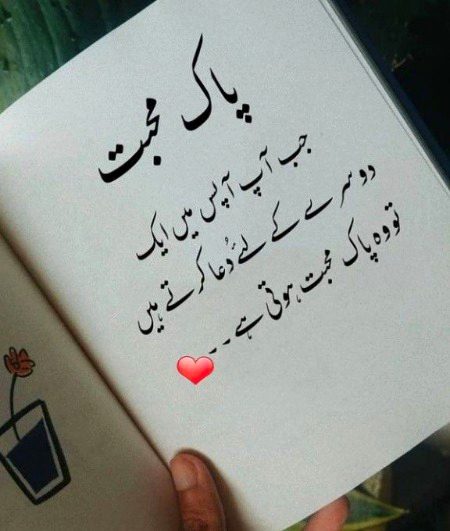 پاک محبت
جب آپ آپس میں ایک
دوسرے کے لئے دُعا کرتے ہیں
تو وہ پاک محبت ہوتی ہے۔۔